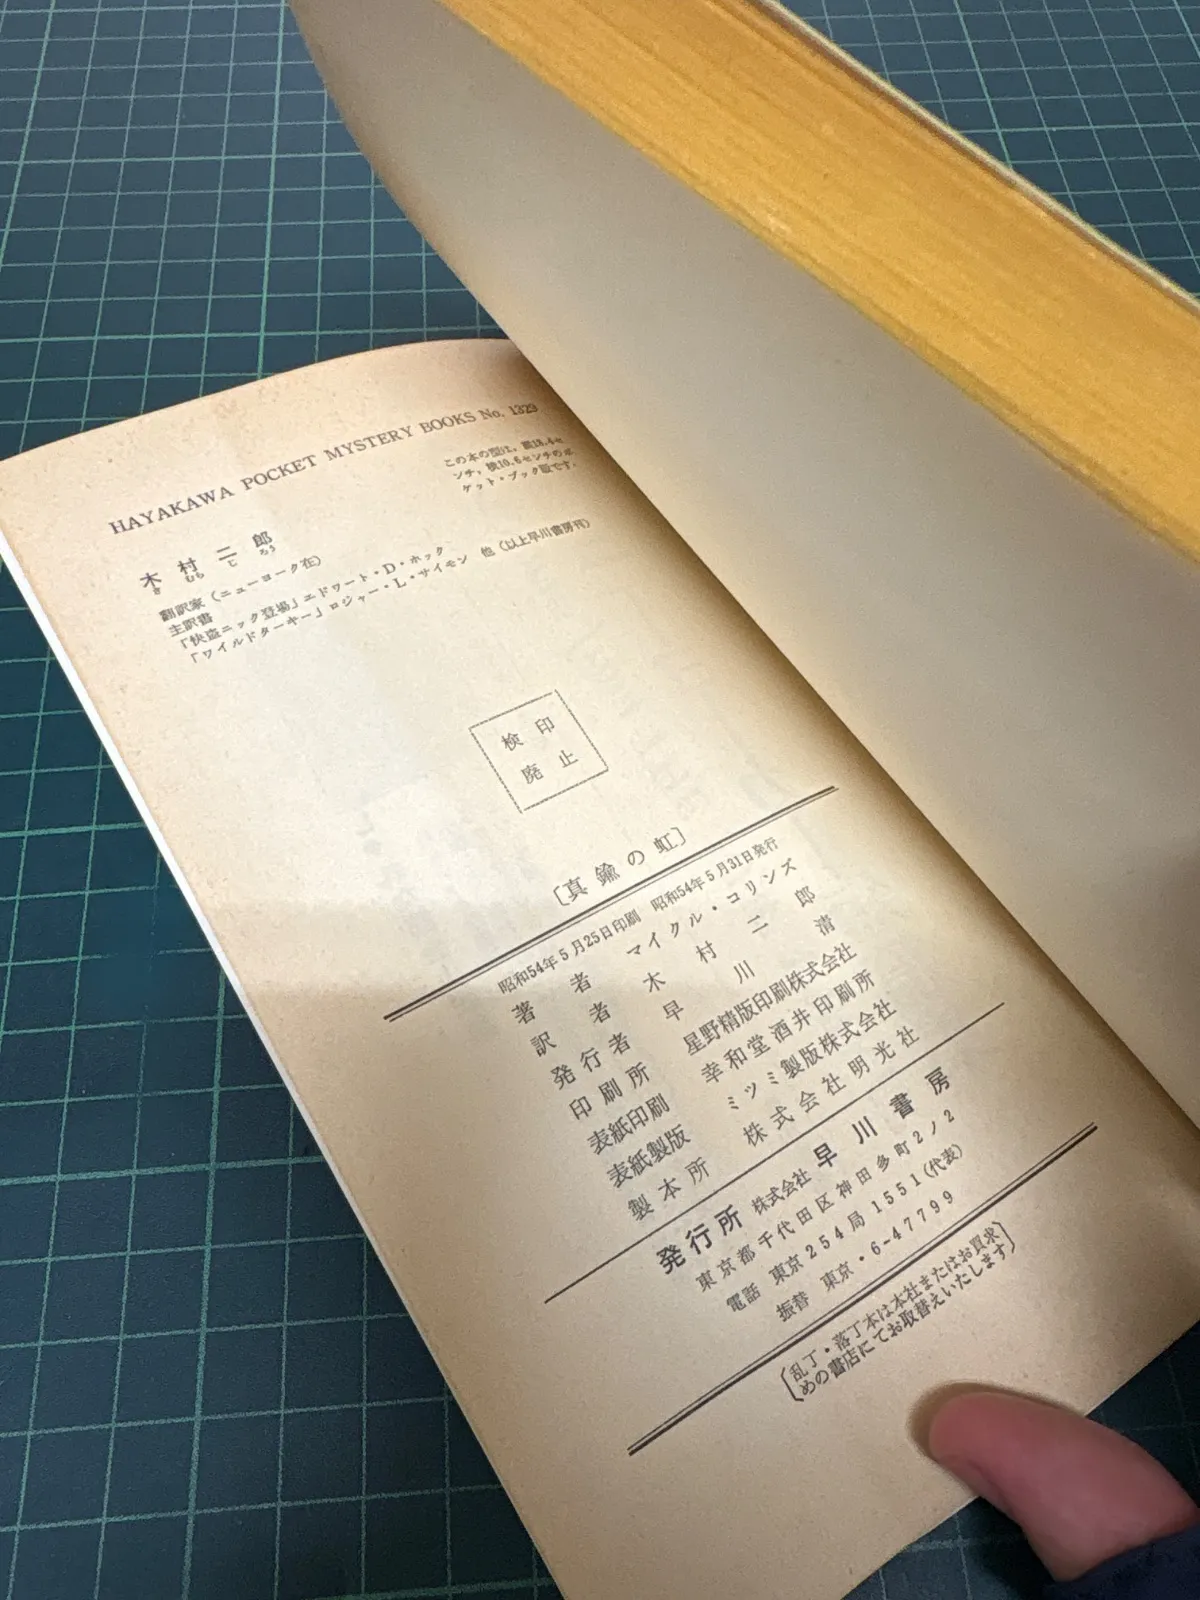 HAYAKAWA POCKET MYSTERY BOOKS No. 1329
この本の型は、縦18.4セ
ンチ、横10.6センチのポ
ケット・ブック版です。
木村二郎
きむらじろう
翻訳家(ニューヨーク在)
主訳書
「快盗ニック登場」エドワート・D・ホック
「ワイルドターキー」ロジャー・L・サイモン 他(以上早川書房刊)
検印
廃止
〔真鍮の虹〕
昭和54年5月25日印刷 昭和54年5月31日発行
著者 マイクル・コリンズ
訳者 木村二郎
発行者 早川清
印刷所 星野精版印刷株式会社
表紙印刷 幸和堂酒井印刷所
表紙製版 ミツミ製版株式会社
製本所 株式会社明光社
発行所 株式会社 早川書房
東京都千代田区神田多町2ノ2
電話 東京254局1551(代表)
振替 東京・6-47799
〔乱丁・落丁本は本社またはお買求
めの書店にてお取替えいたします〕